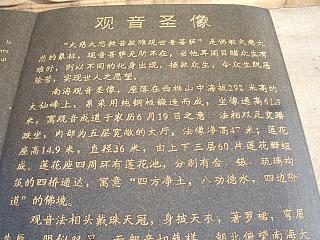 观音圣像
"大慈大悲救苦救难观世音菩萨"是佛教大慈大
悲的象征，观音菩萨无所不在，当他耳闻目睹众生有
难时，则以不同的化身出现，拯救众生，令众生脱离
除苦，实现世人之愿望。
南海观音圣像，座落在西樵山中海拔292米高的
大仙峰上，系采用纯铜板锻造而成，坐像通高61.9
米，寓观音成道于农历6月19日之意。法相双足交踝
趺坐，内部为五层宽敞的大厅，法像净高47米；莲花
座高14.9米，直径36米，由上下三层60片莲花瓣组
成。莲花座四周环有莲花池，分别有金、银、琉璃构
筑的四桥通达，寓意"四方净土，八功德水，四边阶
道"的佛境。
观音法相头戴珠天冠，身披天衣，著罗裙，弯眉